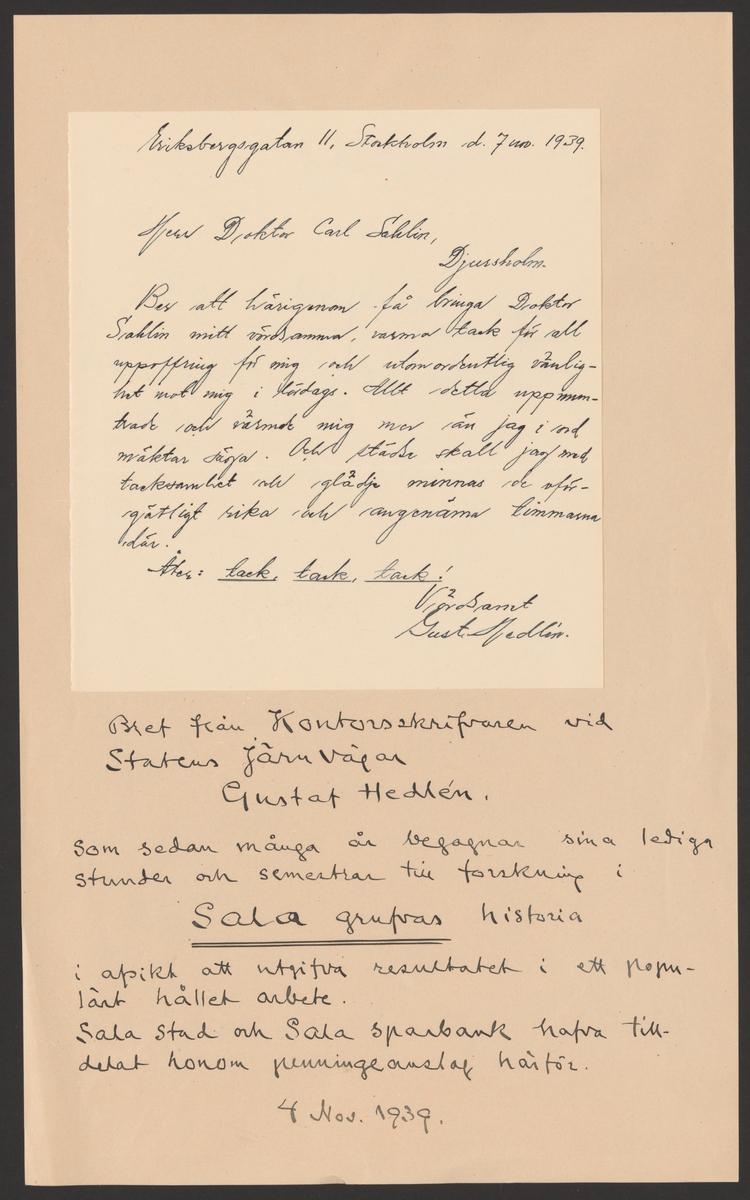 Eriksbergsgatan 11, Stockholm d. 7 nov. 1939.
Herr Doktor Carl Sahlin,
Djursholm.
Ber att härigenom få bringa Doktor
Sahlin mitt vördsamma, varma tack för all
uppoffring för mig och utomordentlig vänlig-
het mot mig i lördags. Allt detta uppmun-
trade och värmde mig mer än jag i ord
mäktar säga. Och städse skall jag med
tacksamhet och glädje minnas de oför-
gätligt rika och angenäma timmarna
där.
Åter: tack, tack, tack!
Vördsamt
Gust. Hedlén.
Bref från Kontorsskrifvaren vid
Statens Järnvägar
Gustaf Hedlén.
Som sedan många år begagnar sina lediga
stunder och semestrar till forskning i
Sala grufvas historia
i afsikt att utgifva resultatet i ett popu-
lärt hållet arbete.
Sala stad och Sala sparbank hafva till-
delat honom penningeanslag härför.
4 Nov. 1939.